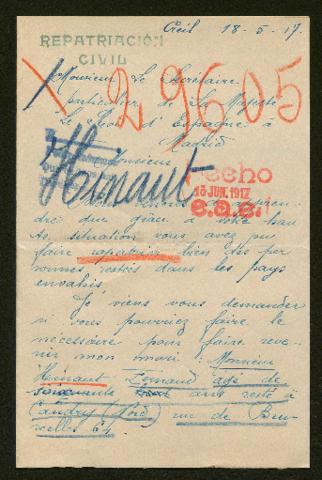 Creil 18-5-17.
REPATRIACIÓN
CIVIL
X 29605
Monsieur Le Secrétaire
particulier de Sa Majesté
Le Roi d'Espagne à
Madrid
Monsieur
Hinaut
hecho
15 JUN. 1917
e.a.e.
dre que grâce à votre hau
te situation vous avez pu
faire rapatrier bien des per
sonnes restées dans les pays
envahis.
Je viens vous demander
si vous pourriez faire le
nécessaire pour faire reve-
nir mon mari: Monsieur
Hinaut Fernand âgé de
ans resté à
Caudry (Nord) rue de Bru-
xelles 64